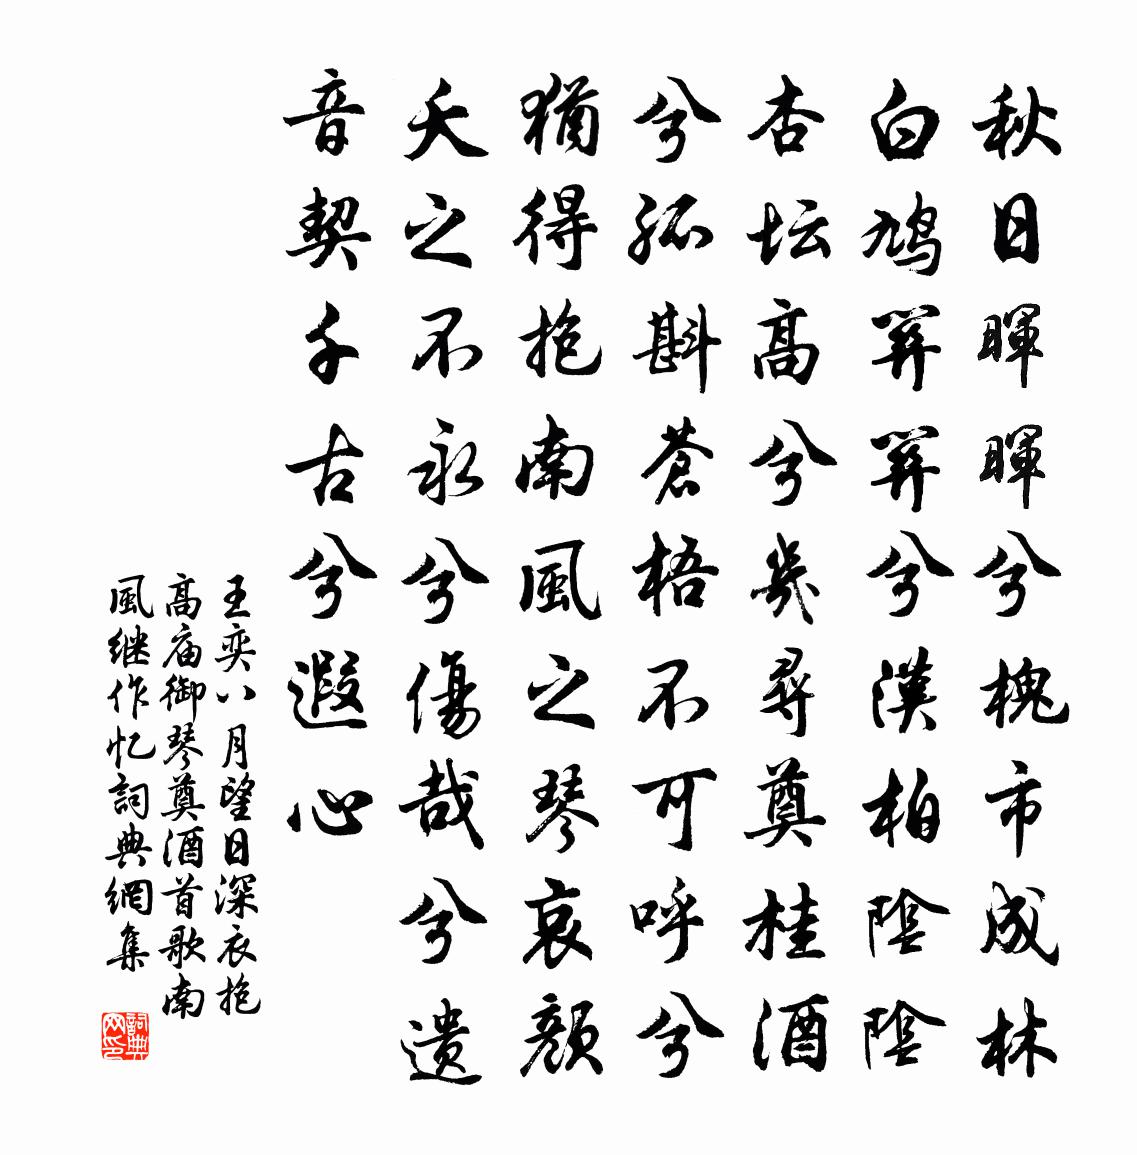 秋日暉暉兮槐市成林
白鸠羿羿兮漢柏陰陰
杏坛高兮幾尋奠桂酒
兮孤斟蒼梧不可呼兮
猶得抱南風之琴哀顏
夭之不永兮傷哉兮遺
音契千古兮遐心
王奕八月望日深衣抱
高庙御琴奠酒首歌南
風继作忆詞典網集
詞典网印